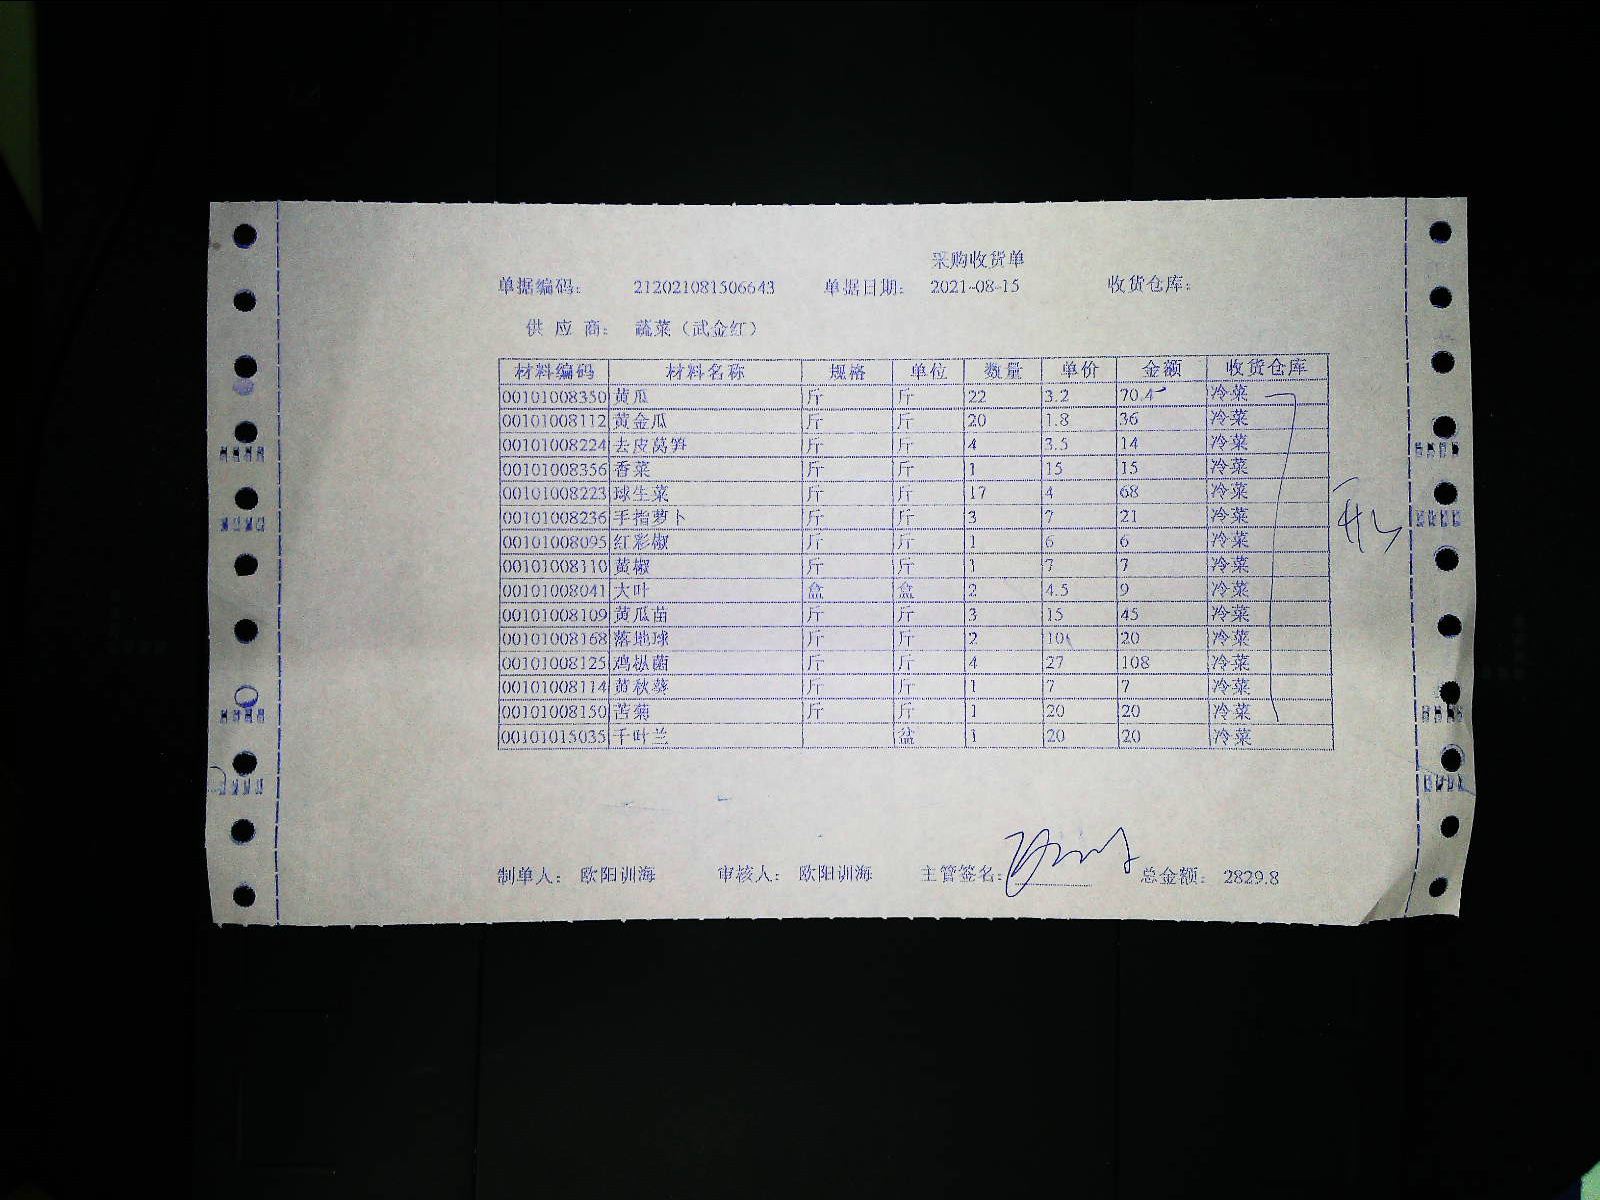 采购收货单
单据编码： 212021081506643 单据日期： 2021-08-15 收货仓库：
供 应 商： 蔬菜（武金红）
材料编码 材料名称 规格 单位 数量 单价 金额 收货仓库
00101008350 黄瓜 斤 斤 22 3.2 70.4 冷菜
00101008112 黄金瓜 斤 斤 20 1.8 36 冷菜
00101008224 去皮莴笋 斤 斤 4 3.5 14 冷菜
00101008356 香菜 斤 斤 1 15 15 冷菜
00101008223 球生菜 斤 斤 17 4 68 冷菜
00101008236 手指萝卜 斤 斤 3 7 21 冷菜
00101008095 红彩椒 斤 斤 1 6 6 冷菜
00101008110 黄椒 斤 斤 1 7 7 冷菜
00101008041 大叶 盒 盒 2 4.5 9 冷菜
00101008109 黄瓜苗 斤 斤 3 15 45 冷菜
00101008168 落地球 斤 斤 2 10 20 冷菜
00101008125 鸡枞菌 斤 斤 4 27 108 冷菜
00101008114 黄秋葵 斤 斤 1 7 7 冷菜
00101008150 苦菊 斤 斤 1 20 20 冷菜
00101015035 千叶兰 盆 1 20 20 冷菜
制单人： 欧阳训海 审核人： 欧阳训海 主管签名： 总金额： 2829.8